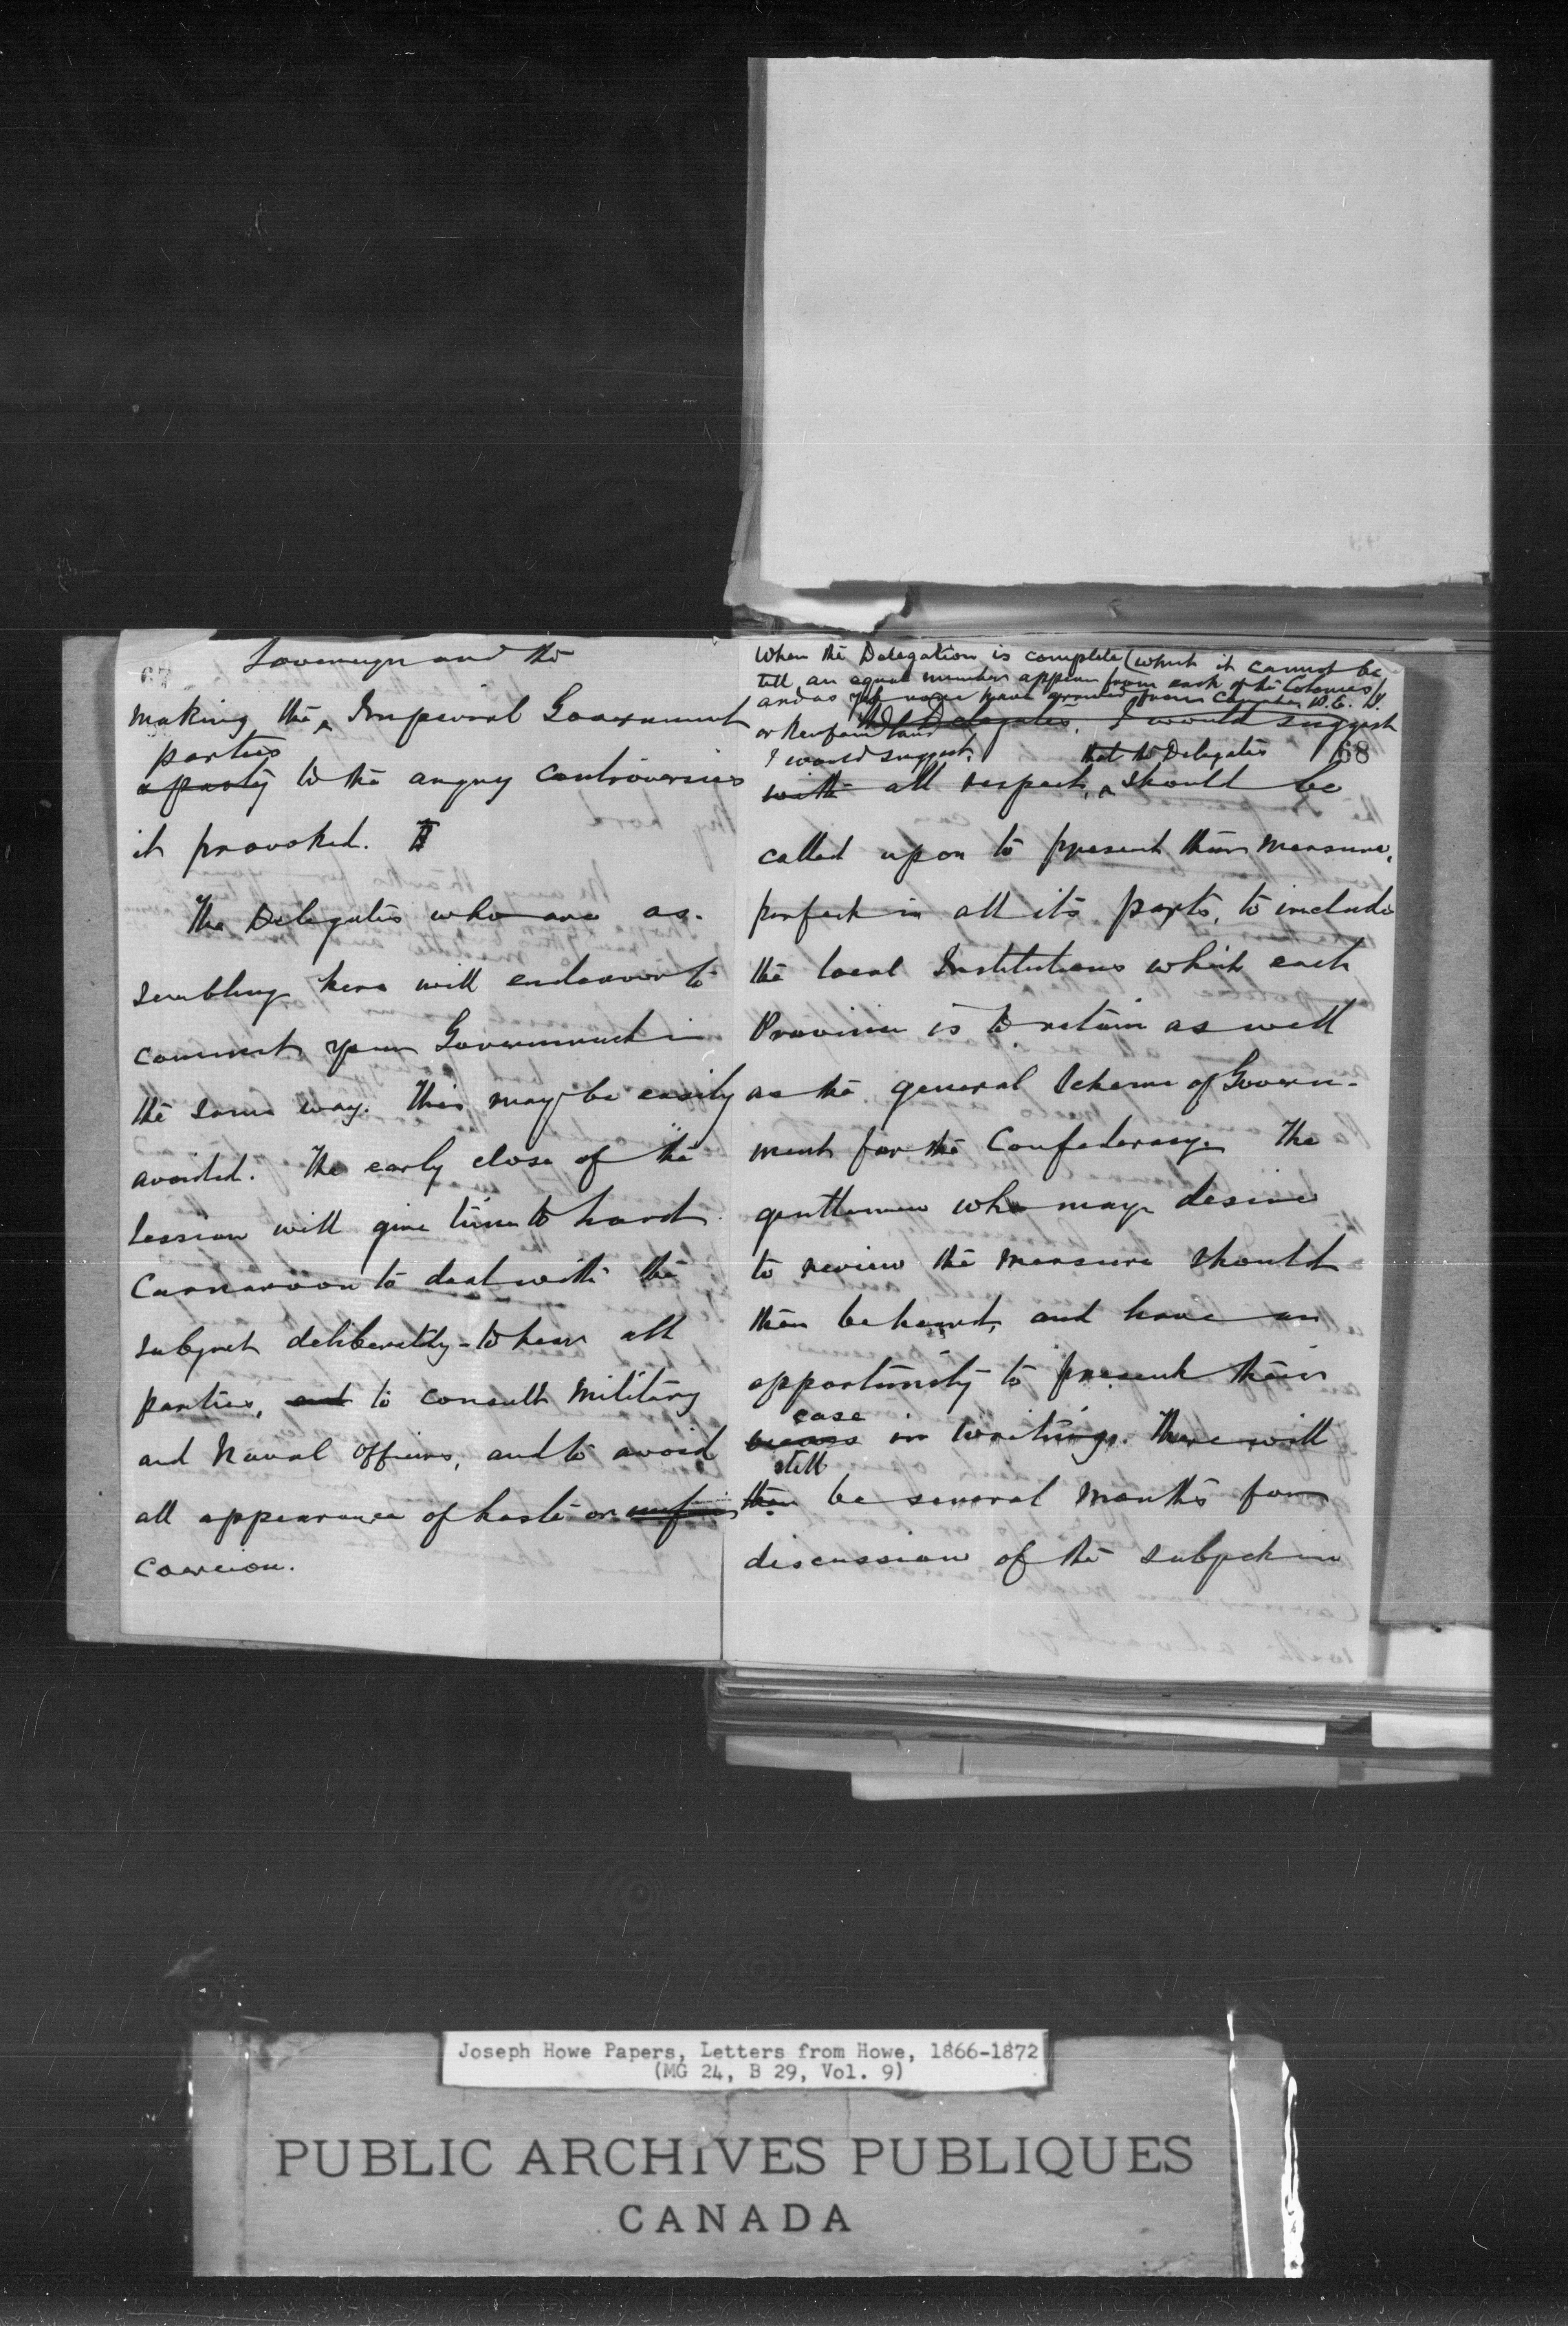 67
Sovereign and the
making the ^ Imperial Government
parties
a party to the angry controversies
it provoked.
The Delegates who are as-
sembling here will endeavor to
commit your Government in
the same way. This may be easily
avoided. The early close of the
Session will give time to Lord
Carnarvon to deal with the
subject deliberately - to hear all
parties, and to consult Military
and Naval Officers, and to avoid
all appearance of haste or
coercion.
When the Delegation is complete (which it cannot be
till an equal number appear from each of the Colonies)
and as yet none have arrived from Canada P.E.I.
or Newfoundland
the Delegates, I would suggest
I would suggest, that the Delegates 68
with all respect, ^ should be
called upon to present their measure,
perfect in all its parts, to include
the local Institutions which each
Province is to retain as well
as the general Scheme of Govern-
ment for the Confederacy. The
gentlemen who may desire
to review the measure should
then be heard, and have an
opportunity to present their
case
in writing. There will
still
then be several months for
discussion of the subject in
Joseph Howe Papers, Letters from Howe, 1866-1872
(MG 24, B 29, Vol. 9)
PUBLIC ARCHIVES PUBLIQUES
CANADA